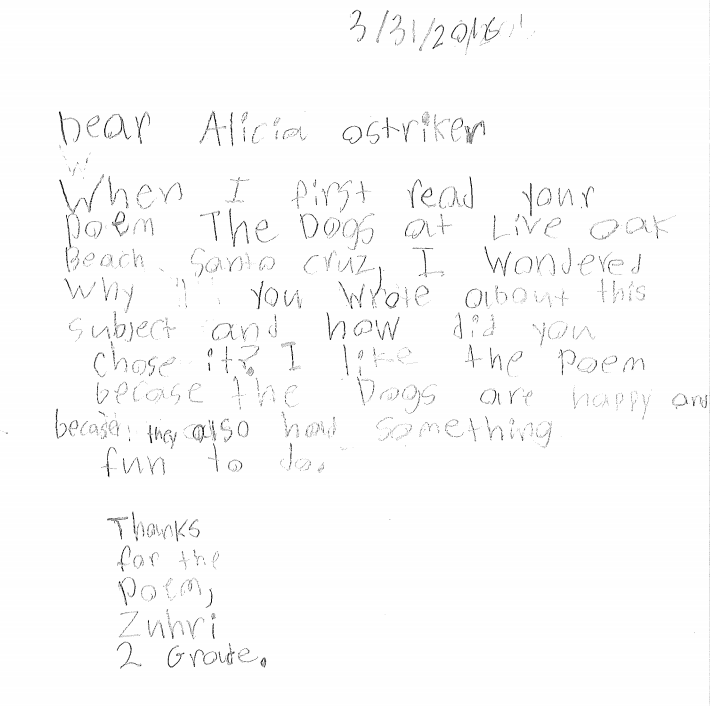 3/31/2016
Dear Alicia Ostriker
W
When I first read your
poem The Dogs at Live oak
Beach. Santa Cruz, I Wondered
Why you Wrote about this
subject and how did you
chose it? I like the poem
becase the Dogs are happy and
becase. they also had something
fun to do.
Thanks
for the
poem,
Zuhri
2 Grade.